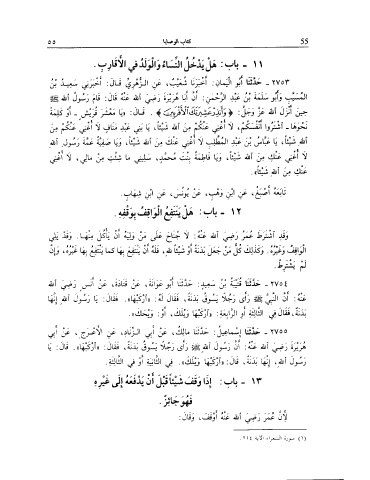 55 كتاب الوصايا ٥٥
١١ - باب: هَلْ يَدْخُلُ النِّسَاءُ وَالْوَلَدُ فِي الْأَقَارِبِ.
٢٧٥٣ - حَدَّثَنَا أَبُو الْيَمَانِ: أَخْبَرَنَا شُعَيْبٌ، عَنِ الزُّهْرِيِّ قَالَ: أَخْبَرَنِي سَعِيدُ بْنُ
الْمُسَيَّبِ وَأَبُو سَلَمَةَ بْنُ عَبْدِ الرَّحْمَنِ: أَنَّ أَبَا هُرَيْرَةَ رَضِيَ اللهُ عَنْهُ قَالَ: قَامَ رَسُولُ اللهِ ﷺ
حِينَ أَنْزَلَ اللهُ عَزَّ وَجَلَّ: ﴿وَأَنْذِرْ عَشِيرَتَكَ الْأَقْرَبِينَ﴾. قَالَ: «يَا مَعْشَرَ قُرَيْشٍ - أَوْ كَلِمَةً
نَحْوَهَا - اشْتَرُوا أَنْفُسَكُمْ، لَا أُغْنِي عَنْكُمْ مِنَ اللهِ شَيْئًا، يَا بَنِي عَبْدِ مَنَافٍ لَا أُغْنِي عَنْكُمْ مِنَ
اللهِ شَيْئًا، يَا عَبَّاسُ بْنَ عَبْدِ الْمُطَّلِبِ لَا أُغْنِي عَنْكَ مِنَ اللهِ شَيْئًا، وَيَا صَفِيَّةُ عَمَّةَ رَسُولِ اللهِ
لَا أُغْنِي عَنْكِ مِنَ اللهِ شَيْئًا، وَيَا فَاطِمَةُ بِنْتَ مُحَمَّدٍ، سَلِينِي مَا شِئْتِ مِنْ مَالِي، لَا أُغْنِي
عَنْكِ مِنَ اللهِ شَيْئًا».
تَابَعَهُ أَصْبَغُ، عَنِ ابْنِ وَهْبٍ، عَنْ يُونُسَ، عَنِ ابْنِ شِهَابٍ.
١٢ - باب: هَلْ يَنْتَفِعُ الْوَاقِفُ بِوَقْفِهِ.
وَقَدِ اشْتَرَطَ عُمَرُ رَضِيَ اللهُ عَنْهُ: لَا جُنَاحَ عَلَى مَنْ وَلِيَهُ أَنْ يَأْكُلَ مِنْهَا. وَقَدْ يَلِي
الْوَاقِفُ وَغَيْرُهُ. وَكَذَلِكَ كُلُّ مَنْ جَعَلَ بَدَنَةً أَوْ شَيْئًا لِلهِ، فَلَهُ أَنْ يَنْتَفِعَ بِهَا كَمَا يَنْتَفِعُ بِهَا غَيْرُهُ، وَإِنْ
لَمْ يَشْتَرِطْ.
٢٧٥٤ - حَدَّثَنَا قُتَيْبَةُ بْنُ سَعِيدٍ: حَدَّثَنَا أَبُو عَوَانَةَ، عَنْ قَتَادَةَ، عَنْ أَنَسٍ رَضِيَ اللهُ
عَنْهُ: أَنَّ النَّبِيَّ ﷺ رَأَى رَجُلًا يَسُوقُ بَدَنَةً، فَقَالَ لَهُ: «ارْكَبْهَا». فَقَالَ: يَا رَسُولَ اللهِ إِنَّهَا
بَدَنَةٌ، فَقَالَ فِي الثَّالِثَةِ أَوِ الرَّابِعَةِ: «ارْكَبْهَا وَيْلَكَ، أَوْ: وَيْحَكَ».
٢٧٥٥ - حَدَّثَنَا إِسْمَاعِيلُ: حَدَّثَنَا مَالِكٌ، عَنْ أَبِي الزِّنَادِ، عَنِ الْأَعْرَجِ، عَنْ أَبِي
هُرَيْرَةَ رَضِيَ اللهُ عَنْهُ: أَنَّ رَسُولَ اللهِ ﷺ رَأَى رَجُلًا يَسُوقُ بَدَنَةً، فَقَالَ: «ارْكَبْهَا». قَالَ: يَا
رَسُولَ اللهِ، إِنَّهَا بَدَنَةٌ، قَالَ: «ارْكَبْهَا وَيْلَكَ». فِي الثَّانِيَةِ أَوْ فِي الثَّالِثَةِ.
١٣ - باب: إِذَا وَقَفَ شَيْئًا قَبْلَ أَنْ يَدْفَعَهُ إِلَى غَيْرِهِ
فَهُوَ جَائِزٌ.
لِأَنَّ عُمَرَ رَضِيَ اللهُ عَنْهُ أَوْقَفَ، وَقَالَ:
(٦) سورة الشعراء الآية ٢١٤.